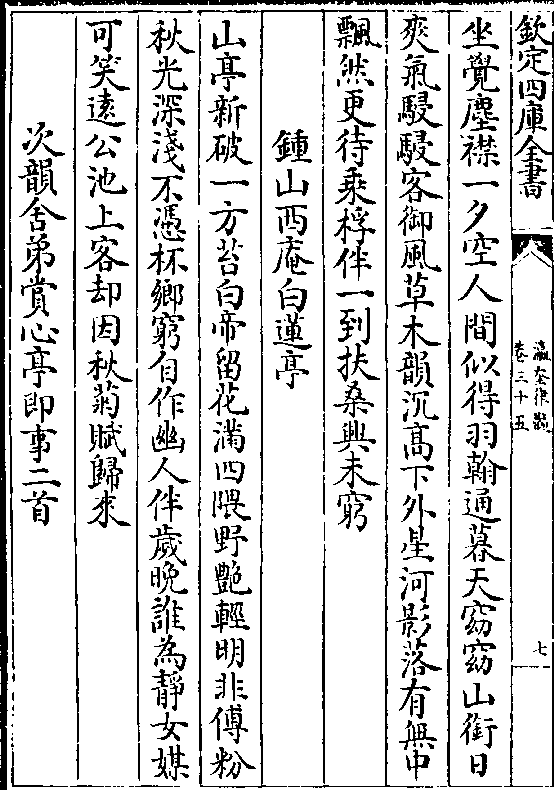 欽定四庫全書
瀛奎律髓
卷三十五
七
坐覺塵襟一夕空人間似得羽翰通暮天窈窈山銜日
爽氣駸駸客御風草木韻沉髙下外星河影落有無中
飄然更待乘桴伴一到扶桑興未窮
鍾山西庵白蓮亭
山亭新破一方苔白帝留花滿四隈野艶輕明非傅粉
秋光深淺不憑杯鄉窮自作幽人伴歲晚誰為靜女媒
可笑逺公池上客却因秋菊賦歸來
次韻舍弟賞心亭即事二首